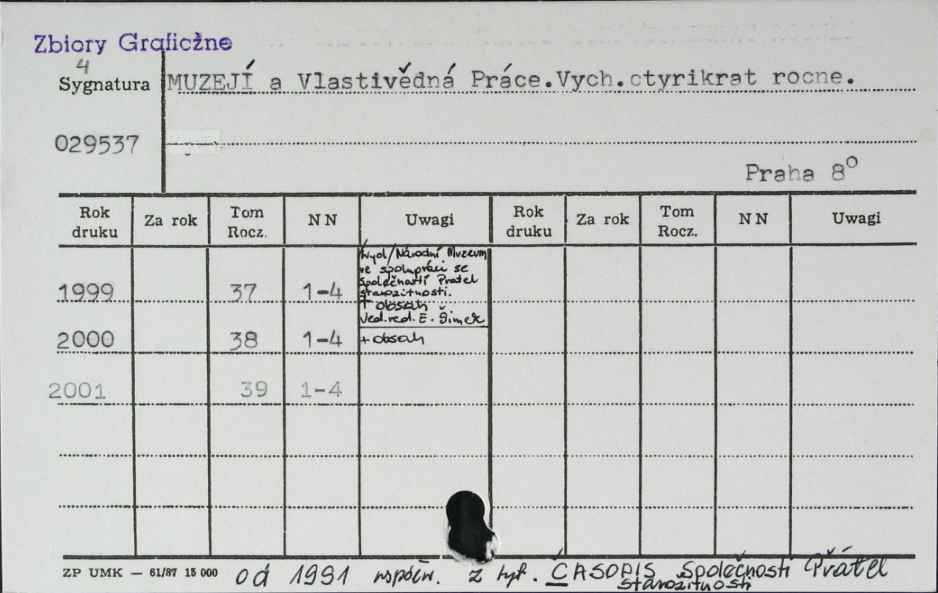 Zbiory Graficžne
4
Sygnatura MUZEJÍ a Vlastivědná Práce.Vych.ctyrikrat rocne.
029537
Praha 8º
Rok druku Za rok Tom Rocz. N N Uwagi Rok druku Za rok Tom Rocz. N N Uwagi
Wyd/Národní Muzeum
ve spolupráci se
Společností Přatel
starozitnosti.
1999 37 1-4
+ obsah
Ved.red. E. Šimek
2000 38 1-4 + obsah
2001 39 1-4
ZP UMK — 61/87 15 000 od 1991 współw. z tyt. ČASOPIS Společnosti Přátel
starozitnosti